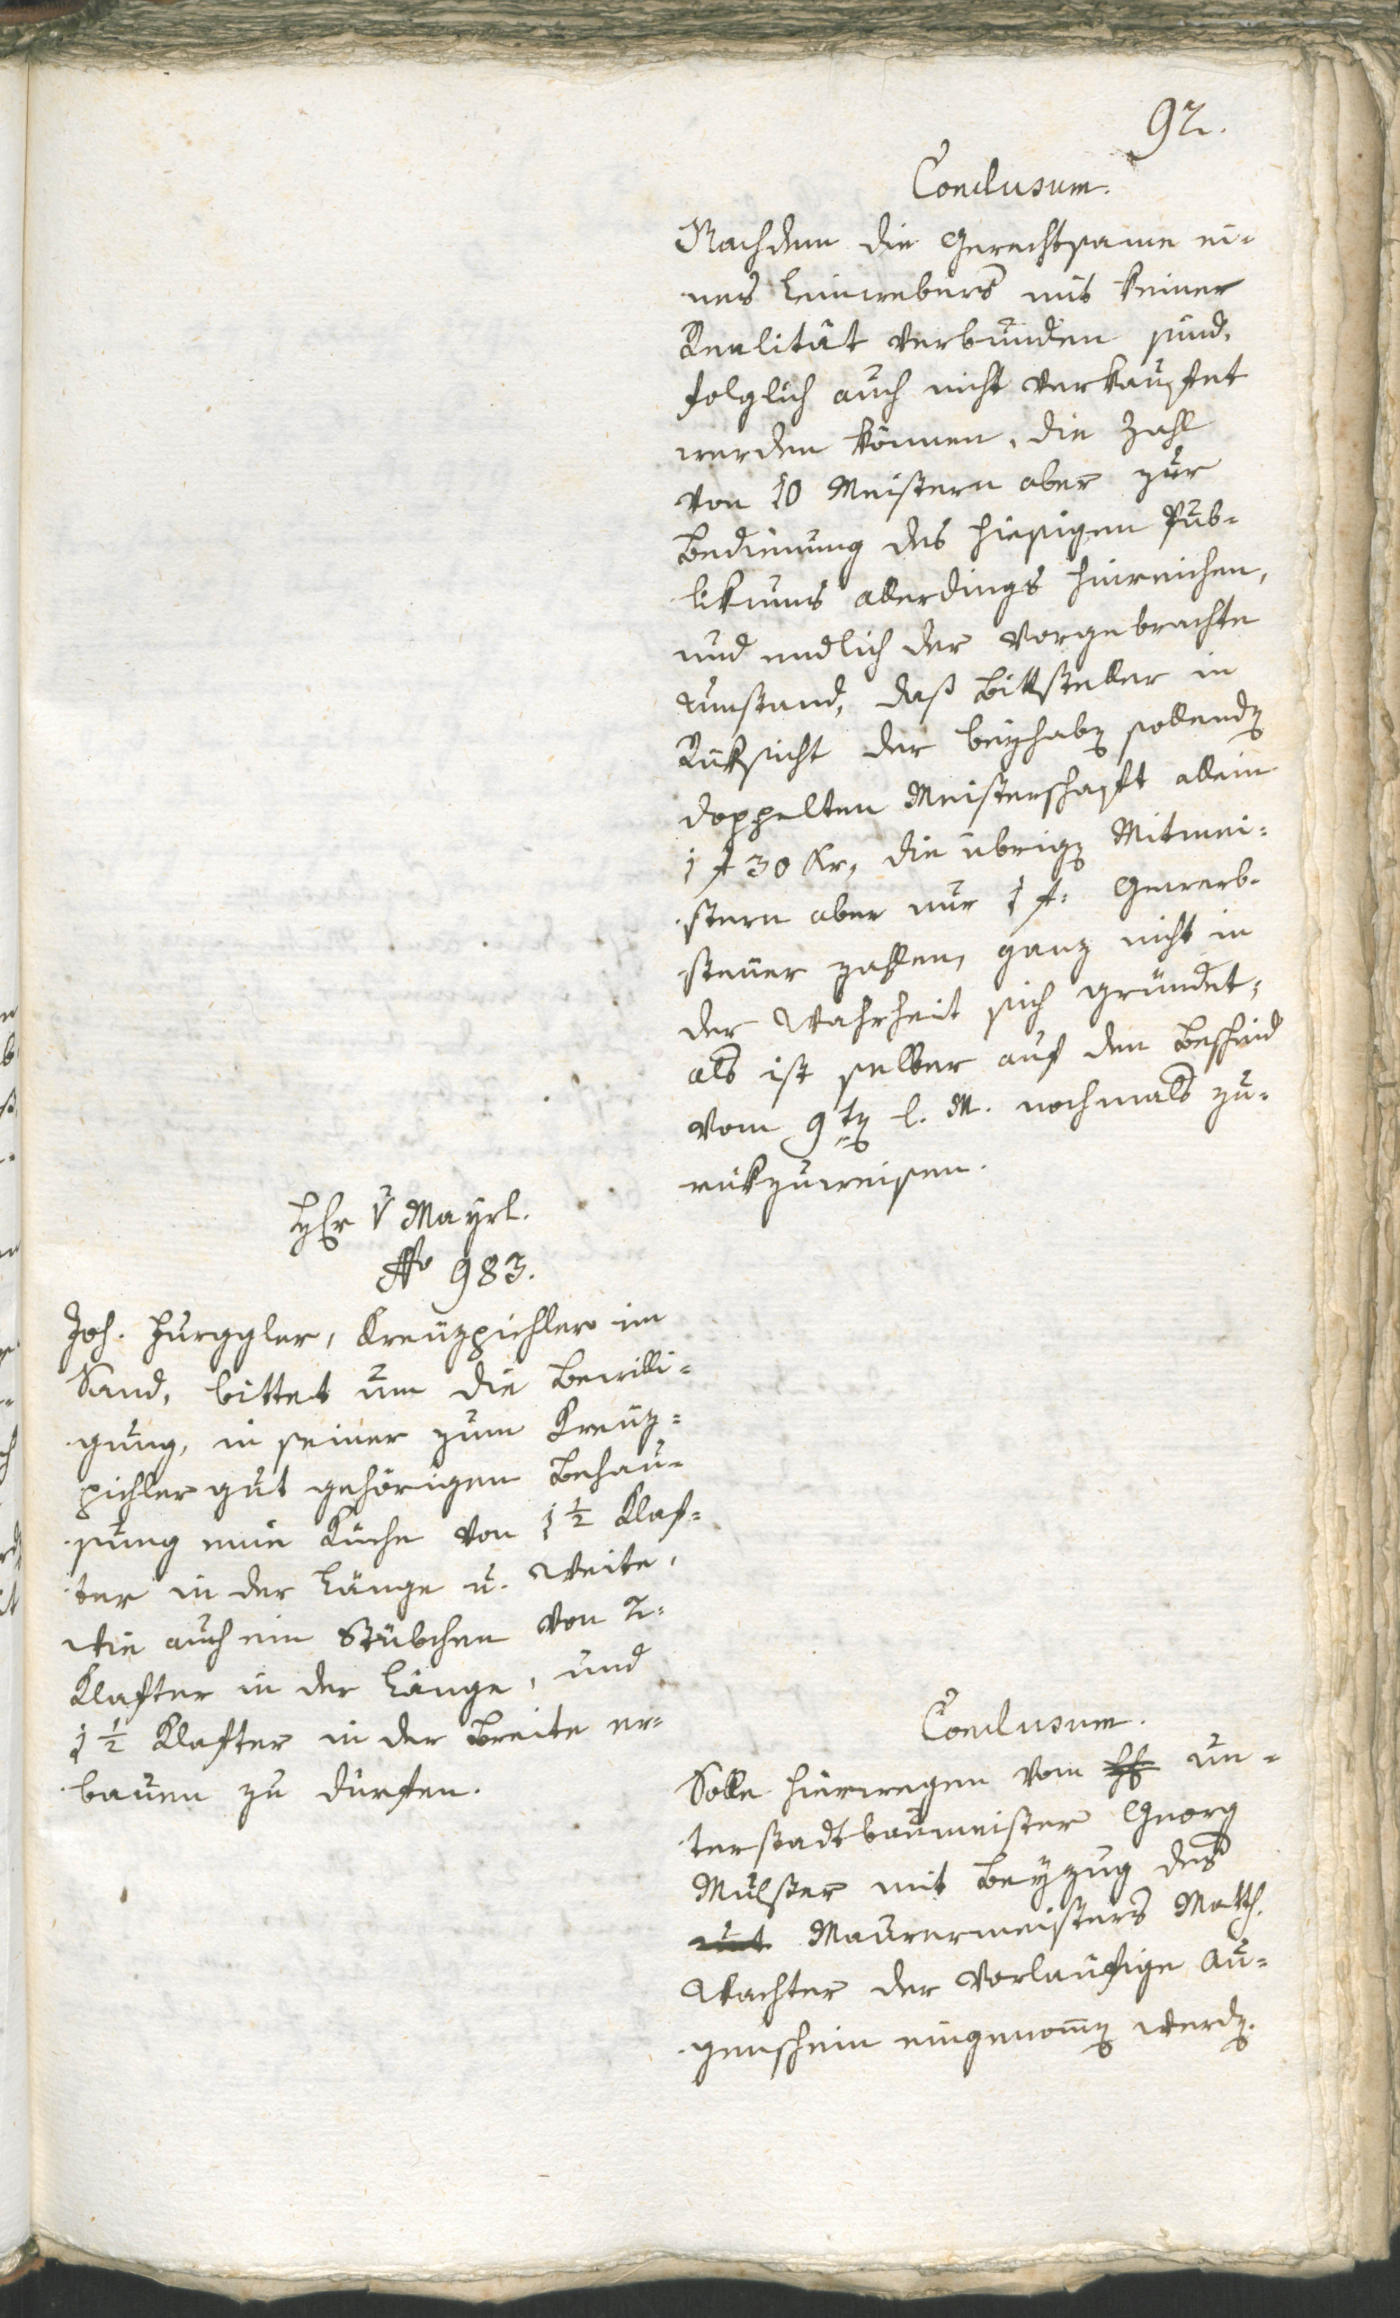 92.
Conclusum.
Nachdem die Gerechtsame ei-
nes Leinwebers mit keiner
Realität verbunden sind,
folglich auch nicht verkaufet
werden können, die Zahl
von 10 Meistern aber zur
Bedienung des hiesigen Pub-
likums allerdings hinreichen,
und endlich der vorgebrachte
Umstand, daß Bittsteller in
Rüksicht der beyhabⁿ sollendⁿ
doppelten Meisterschaft allein
1 f 30 kr, die übrigⁿ Mitmei-
stern aber nur 1 f: Gewerb-
steuer zallen, ganz nicht in
der Wahrheit sich gründet,
als ist selber auf den Bescheid
vom 9tⁿ l. M. nochmals zu-
rükzuweisen.
Hr v Mayrl.
No 983.
Joh. Hurggler, Kreuzpichler im
Sand, bittet um die Bewilli-
gung, in seiner zum Kreuz-
pichlergut gehörigen Behau-
sung eine Küche von 1 1/2 Klaf-
ter in der Länge u. Weite,
wie auch ein Stübchen von 2
Klafter in der Länge, und
1 1/2 Klafter in der Breite er-
bauen zu dürfen.
Conclusum.
Solle hierwegen vom Un-
terstadtbaumeister Georg
Mulster mit Beyzug des
Maurermeisters Matth.
Wachter der vorläufige Au-
genschein eingenom̄ⁿ werdⁿ.